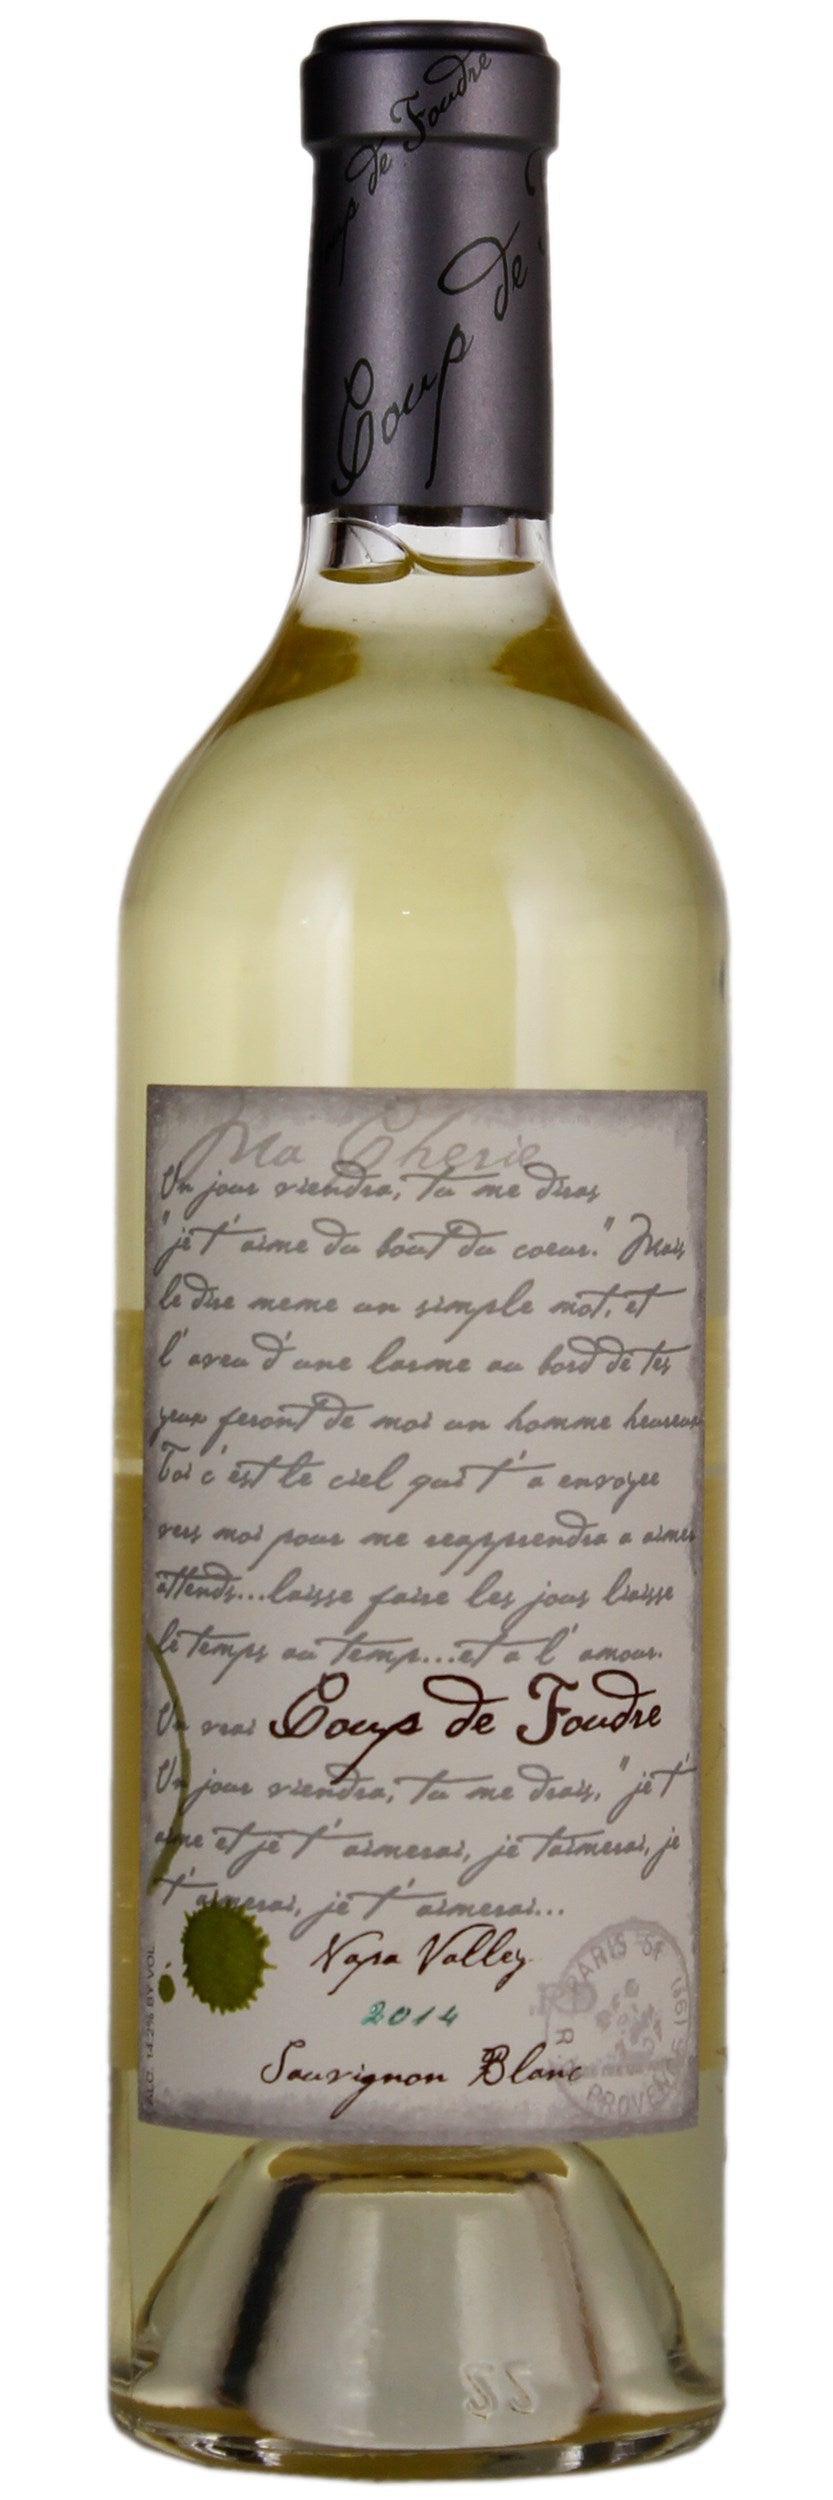 Coup de Foudre
Coup de
Ma Cherie
Un jour viendra, tu me diras
"je t'aime du bout du coeur." Mais
le dire meme un simple mot, et
l'aveu d'une larme au bord de tes
yeux feront de moi un homme heureux
Toi c'est le ciel qui t'a envoyee
vers moi pour me reapprendra a aimer
attends...laisse faire les jous liaisse
le temps au temp...et a l'amour.
Un vrai Coup de Foudre
Un jour viendra, tu me drais, "je t'
aime et je t'aimerai, je taimerai, je
t'aimerai, je t'aimerai...
Napa Valley
2014
Sauvignon Blanc
ALC. 14.2% BY VOL
PARIS